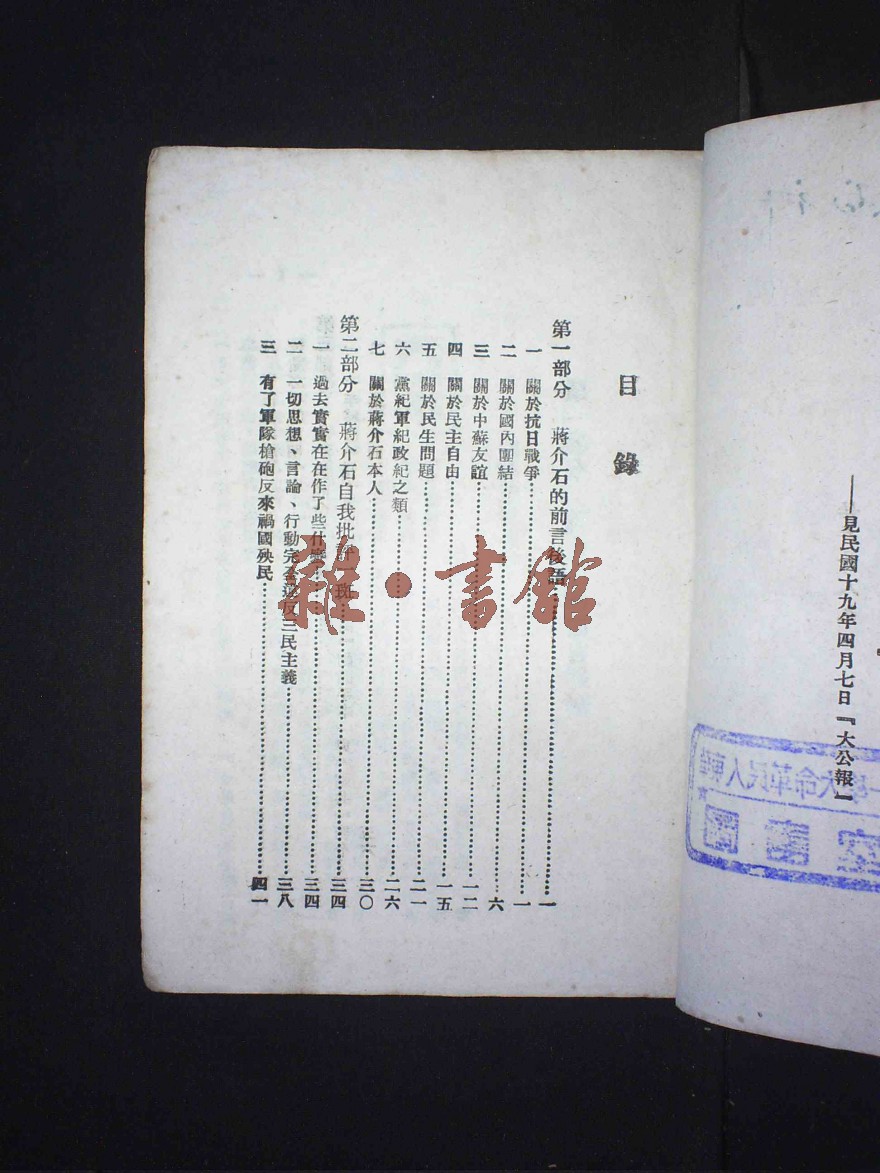 ——見民國十九年四月七日『大公報』
圖書室
目錄
第一部分 蔣介石的前言後語……一
一 關於抗日戰爭……一
二 關於國內團結……六
三 關於中蘇友誼……一二
四 關於民主自由……一五
五 關於民生問題……二一
六 黨紀軍紀政紀之類……二六
七 關於蔣介石本人……三〇
第二部分 蔣介石自我批評一斑……三四
一 過去實實在在作了些什麼……三四
二 一切思想、言論、行動完全違反三民主義……三八
三 有了軍隊槍砲反來禍國殃民……四一
雜·書館